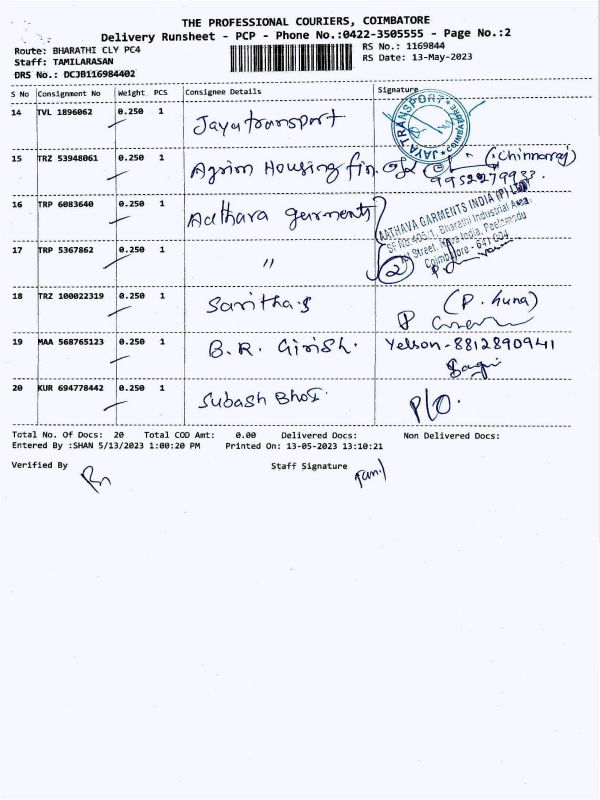 THE PROFESSIONAL COURIERS, COIMBATORE
Delivery Runsheet - PCP - Phone No.:0422-3505555 - Page No.:2
Route: BHARATHI CLY PC4
RS No.: 1169844
Staff: TAMILARASAN
RS Date: 13-May-2023
DRS No.: DCJB116984402
S No Consignment No Weight PCS Consignee Details Signature
14 TVL 1896062 0.250 1 Jayatransport
JAYA TRANSPORT
15 TRZ 53948061 0.250 1 Agrim Housing fin. (Chinnaraj)
9952279933.
16 TRP 6083640 0.250 1 Aathava garments
AATHAVA GARMENTS INDIA (P) LTD
SF No 405/1, Bharathi Industrial Area,
Street, Nava India, Peelamedu
Coimbatore - 641 004
17 TRP 5367862 0.250 1 "
2
18 TRZ 100022319 0.250 1 Saritha.S
19 MAA 568765123 0.250 1 B.R. Girish. Yelson-8812890941
20 KUR 694778442 0.250 1 Subash P/O.
Total No. Of Docs: 20 Total COD Amt: 0.00 Delivered Docs: Non Delivered Docs:
Entered By :SHAN 5/13/2023 1:00:20 PM Printed On: 13-05-2023 13:10:21
Verified By Staff Signature